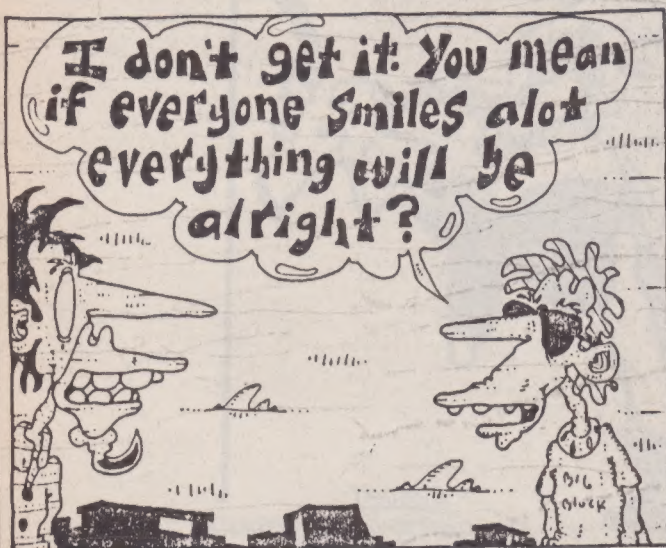 I don't get it. You mean
if everyone smiles alot
everything will be
alright?
BIG
Black